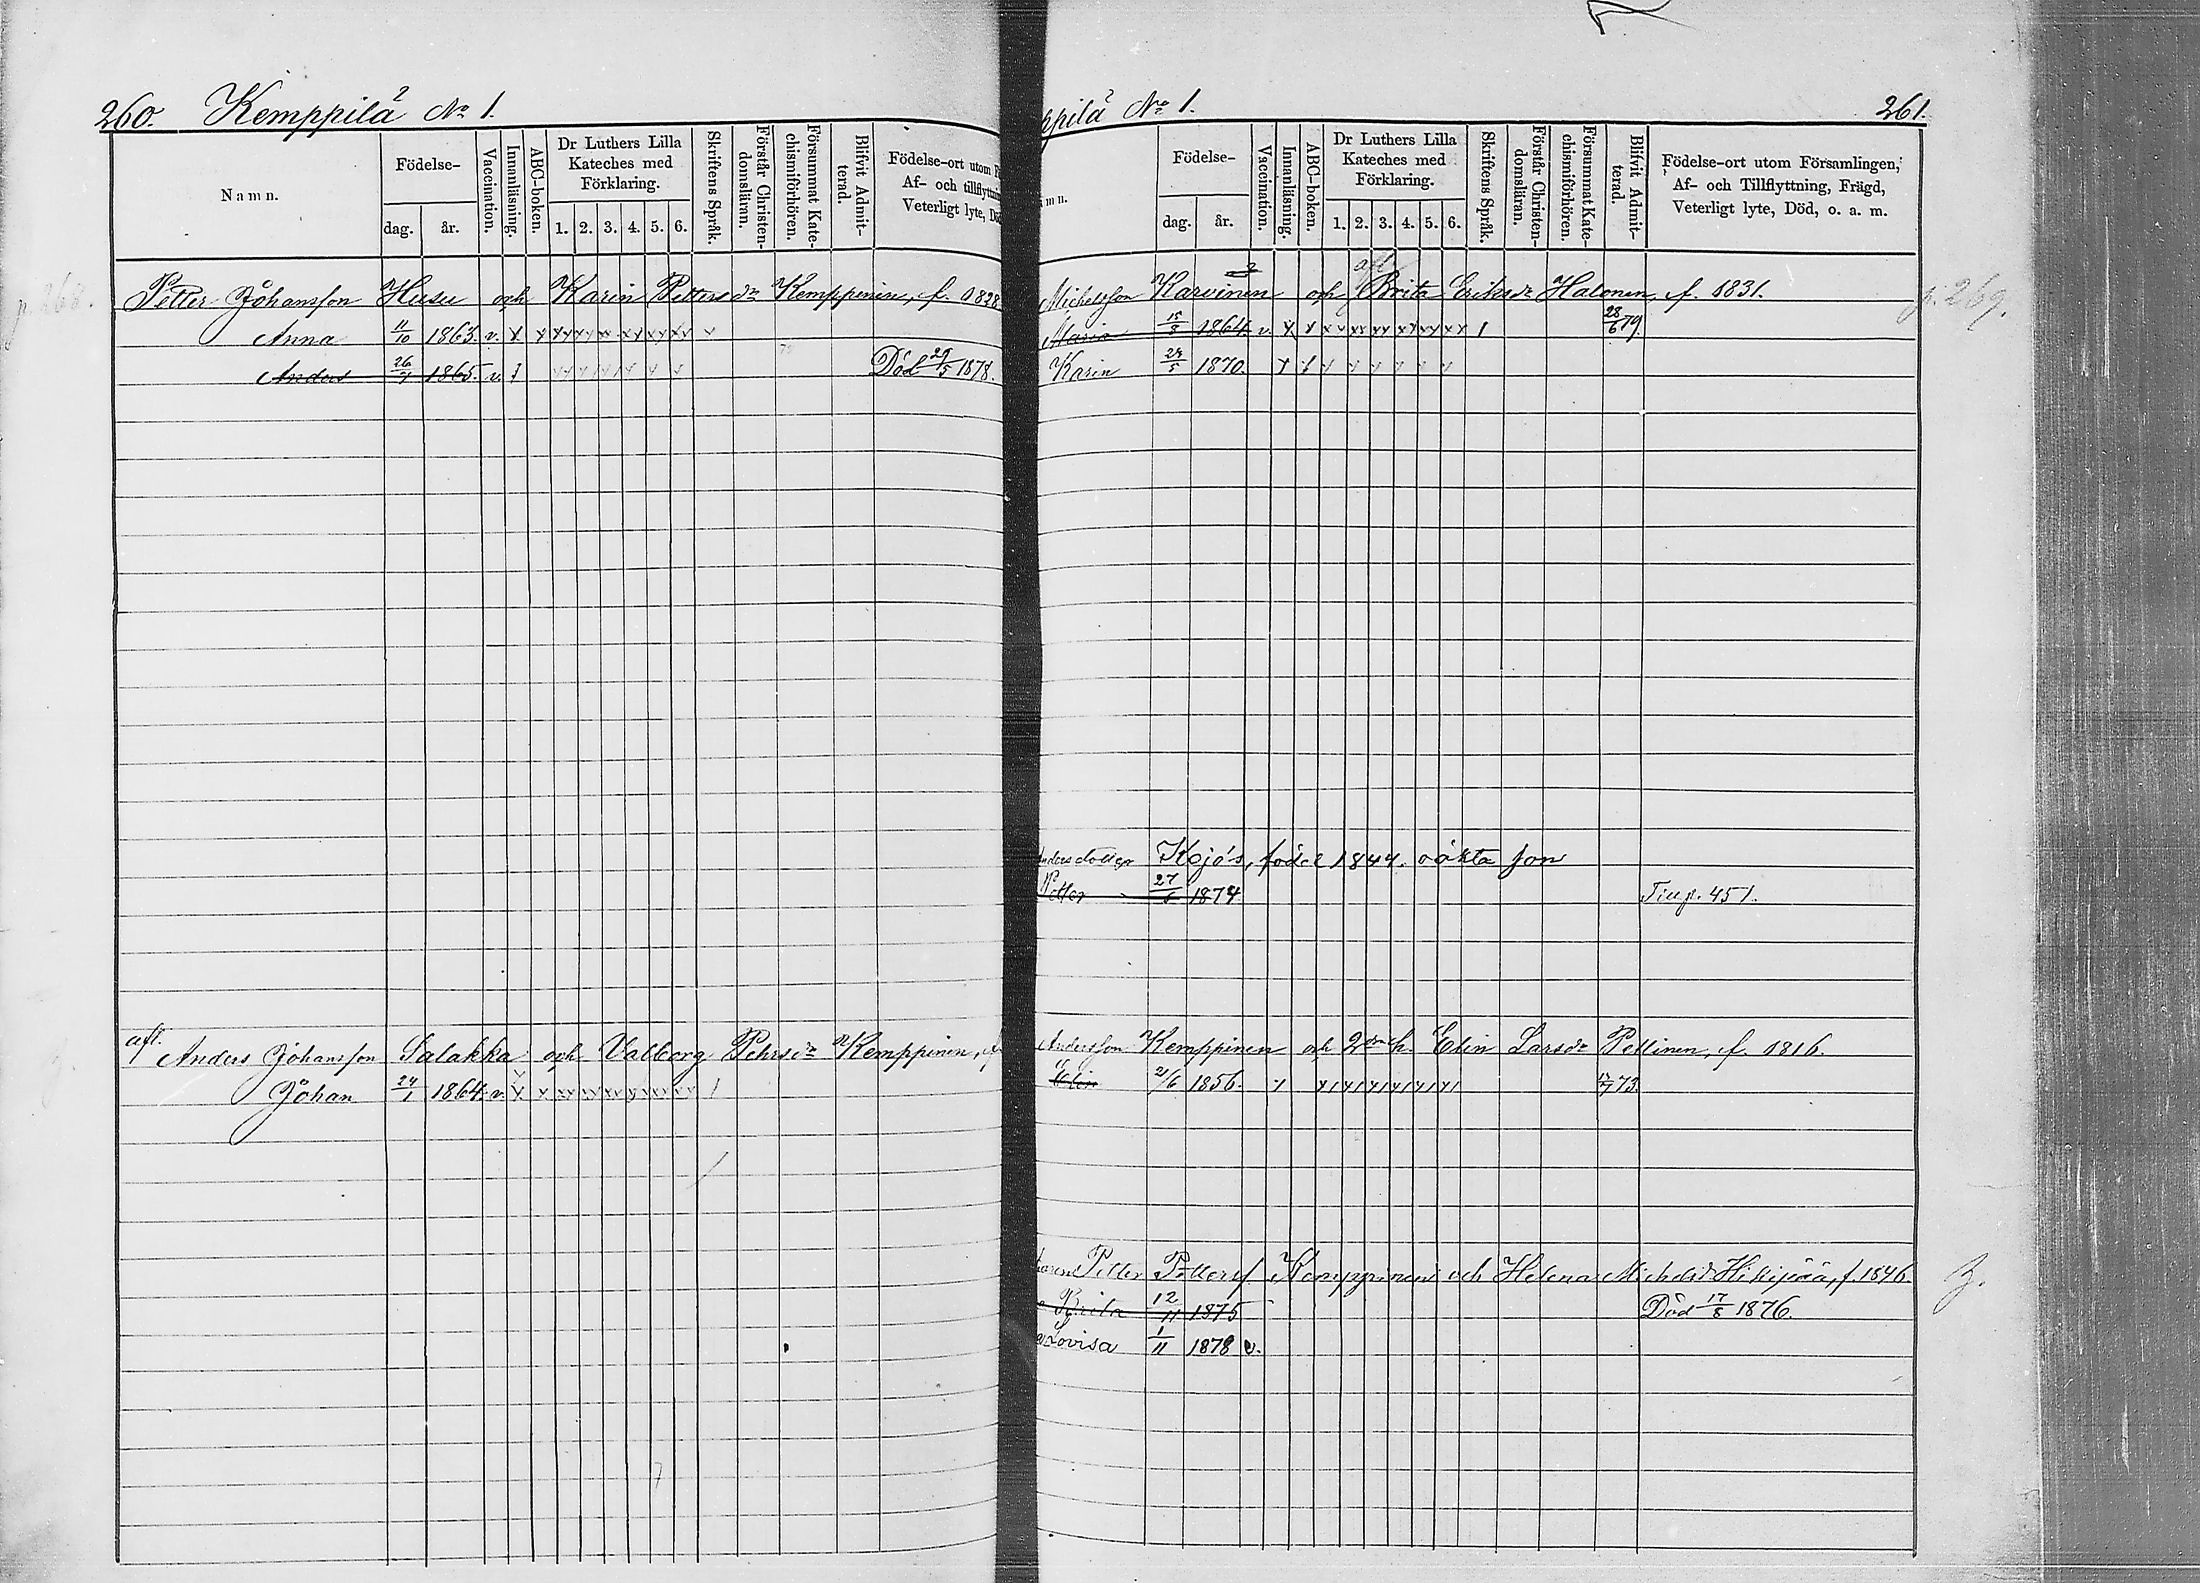 260. Kemppilä 2 No 1.
Namn.
Födelse-
dag.
år.
Vaccination.
Innanläsning.
ABC-boken.
Dr Luthers Lilla
Kateches med
Förklaring.
1. 2. 3. 4. 5. 6.
Skriftens Språk.
Förstår Christen-
domsläran.
Försummat Kate-
chismiförhören.
Blifvit Admit-
terad.
Födelse-ort utom F
Af- och tillflyttnin
Veterligt lyte, Dö
p. 268.
Petter Johansson Husu och Karin Pettersdr Kemppinen, f. 1828
Anna 11/10 1863. v. x x xx xx xx xx xx xx x
Anders 26/7 1865. v. Död 29/5 1878.
aft. Anders Johansson Salakka och Valborg Pehrsdr Kemppinen, f
Johan 24/1 1864. v. x x xx xx xx xx xx xx 1
ppilä 2 No 1.
261.
mn.
Födelse-
dag.
år.
Vaccination.
Innanläsning.
ABC-boken.
Dr Luthers Lilla
Kateches med
Förklaring.
1. 2. 3. 4. 5. 6.
Skriftens Språk.
Förstår Christen-
domsläran.
Försummat Kate-
chismiförhören.
Blifvit Admit-
terad.
Födelse-ort utom Församlingen,
Af- och Tillflyttning, Frägd,
Veterligt lyte, Död, o. a. m.
Michelsson Karvinen och aft Brita Eriksdr Halonen, f. 1831.
p. 269.
Maria 15/8 1864. v. x x x x xx xx xx xx x x 1 28/6 79.
Karin 24/5 1870. x x x x x x x x
Andersdotter Kojo's, född 1844. oäkta son
Petter 27/6 1874 p. 451.
Andersson Kemppinen och 2dra h. Elin Larsdr Pellinen, f. 1816.
Elin 21/6 1856. x x1 x1 x1 x1 x1 x1 73.
Petter Petterss Kemppinen och Helena Michelsd. f. 1846.
Brita 12/11 1875 Död 17/8 1876.
Lovisa 1/11 1878 v.